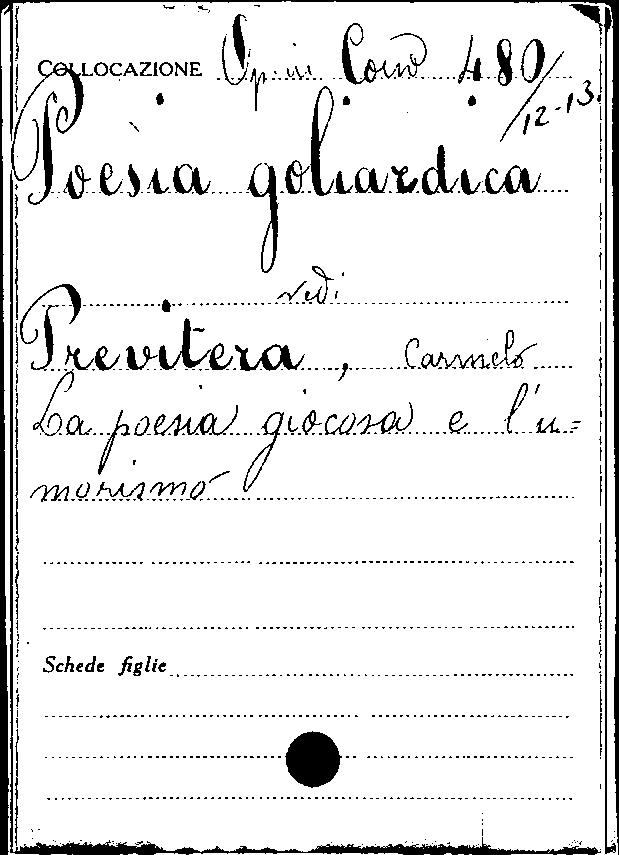 COLLOCAZIONE Op. in Cons 480/12-13.
Poesia goliardica
vedi
Previtera, Carmelo
La poesia giocosa e l'u=
morismo
Schede figlie